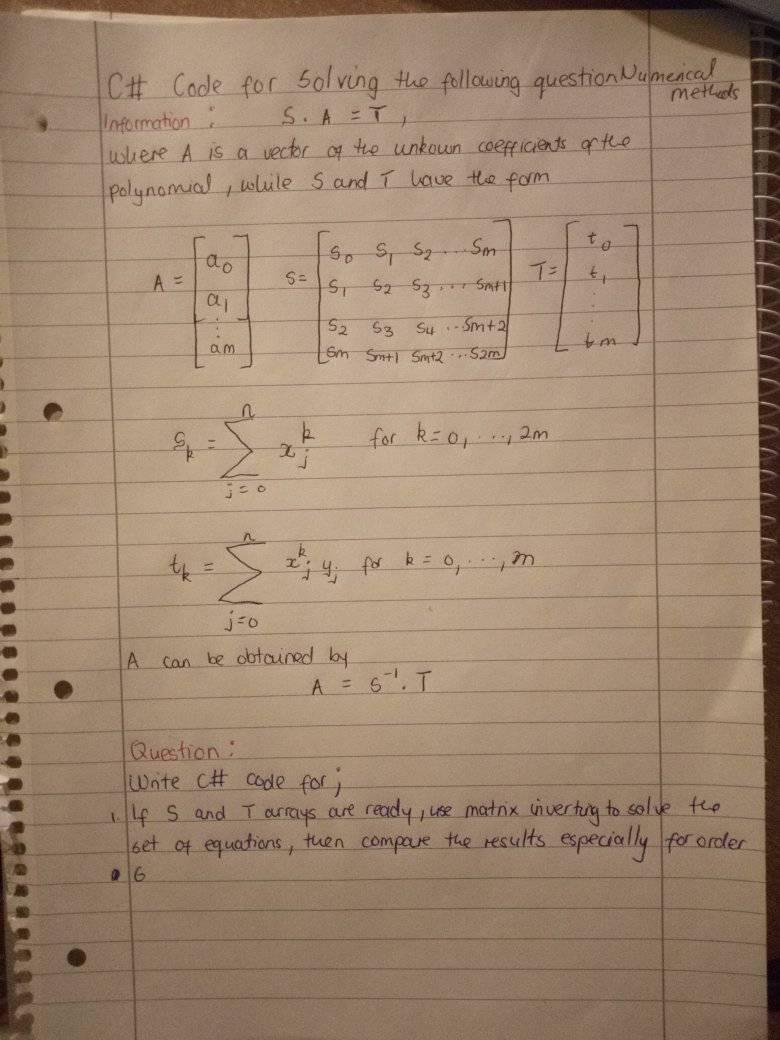 C# Code for Solving the following question Numerical
methods
Information : S . A = T ,
where A is a vector of the unkown coefficients of the
polynomial, while S and T have the form
A = [a0 a1 ⋮ am] S = [S0 S1 S2 ... Sm T = [t0
S1 S2 S3 ... Sm+1 t1
S2 S3 S4 .. Sm+2 ⋮
Sm Sm+1 Sm+2 ... S2m] tm]
n
Sk = ∑ xj^k for k = 0, ..., 2m
j = 0
n
tk = ∑ xj^k yj for k = 0, ..., m
j=0
A can be obtained by
A = S^-1 . T
Question :
Write C# code for ;
1. If S and T arrays are ready, use matrix inverting to solve the
set of equations, then compare the results especially for order
6